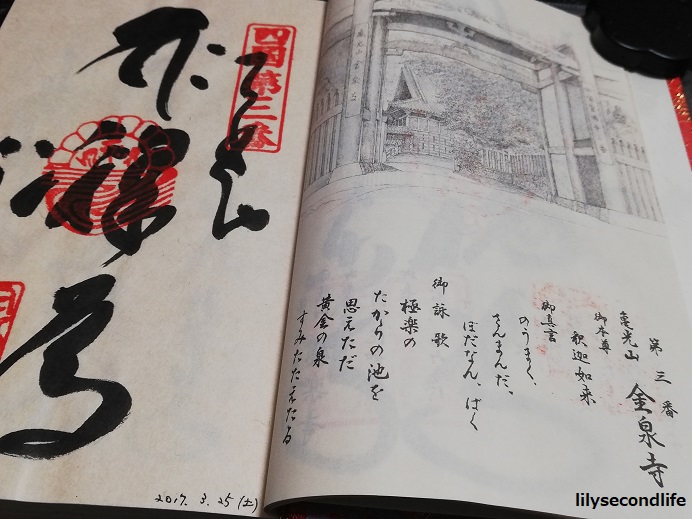 四国第二番
2017. 3. 25 (土)
第三番
亀光山 金泉寺
御本尊
釈迦如来
御真言
のうまく、
さんまんだ、
ぼだなん、ばく
御詠歌
極楽の
たからの池を
思えただ
黄金の泉
すみたたえたる
lilysecondlife